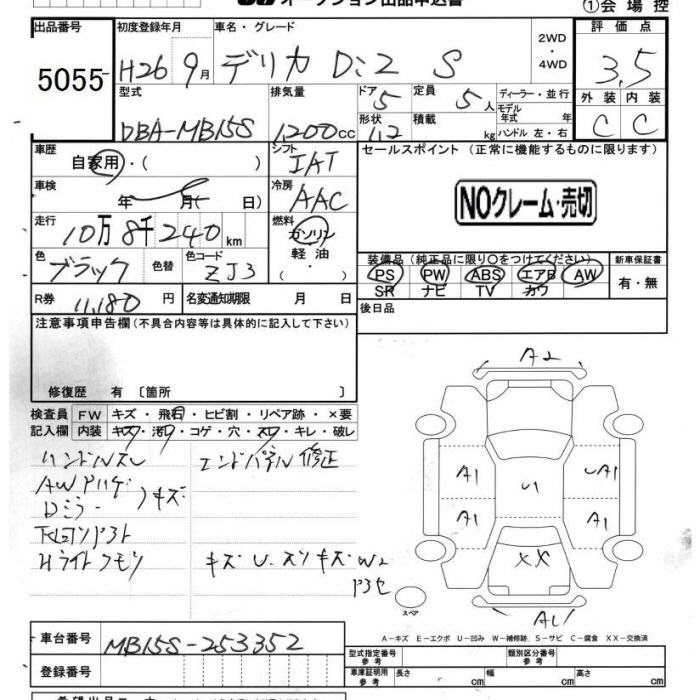 オークション出品申込書
①会場控
出品番号 初度登録年月 車名・グレード 評価点
5055 H26 9月 デリカ D:2 S 2WD・4WD 3.5
型式 排気量 ドア 5 定員 5人 ディーラー・並行 外装 内装
DBA-MB15S 1200cc 形状 積載 kg モデル年式 年 ハンドル 左・右 C C
車歴 自家用・( ) シフト IAT セールスポイント (正常に機能するものに限ります)
車検 年 月( 日 冷房 AAC NOクレーム・売切
走行 10万8千240km 燃料 ガソリン 軽油・
装備品(純正品に限り○をつけてください) 新車保証書
色 ブラック 色替 色コード ZJ3 PS PW ABS エアB AW 有・無
SR ナビ TV カワ
R券 11,180円 名変通知期限 月 日 後日品
注意事項申告欄(不具合内容等は具体的に記入して下さい)
修復歴 有 〔箇所 〕
A2
検査員 FW キズ・飛石・ヒビ割・リペア跡・×要
記入欄 内装 キズ・汚れ・コゲ・穴・スレ・キレ・破レ
ハンドルスレ エンドパネル修正
A1 U1 A1
A1 A1
Dミラー キズ
XX
キズ U. スリキズ W2
スペア
A1
A-キズ E-エクボ U-凹み W-補修跡、S-サビ C-腐食 XX-交換済
車台番号 MB15S-253352 型式指定番号 参考 類別区分番号 参考
登録番号 車庫証明用 参考 長さ cm 幅 cm 高さ cm